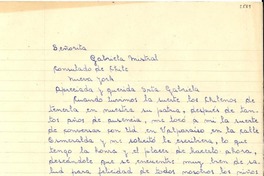 Señorita
Gabriela Mistral
Consulado de Chile
Nueva York
Apreciada y querida Srta Gabriela
Cuando tuvimos la suerte los Chilenos de
tenerla en nuestra su patria, después de tan
tos años de ausencia, me tocó a mi la suerte
de conversar con Ud en Valparaiso en la calle
Esmeralda y me solicitó le escribiera, lo que
tengo la honra y el placer de hacerlo ahora,
deseándole que se encuentre muy bien de sa
lud para felicidad de todos nosotros los niños